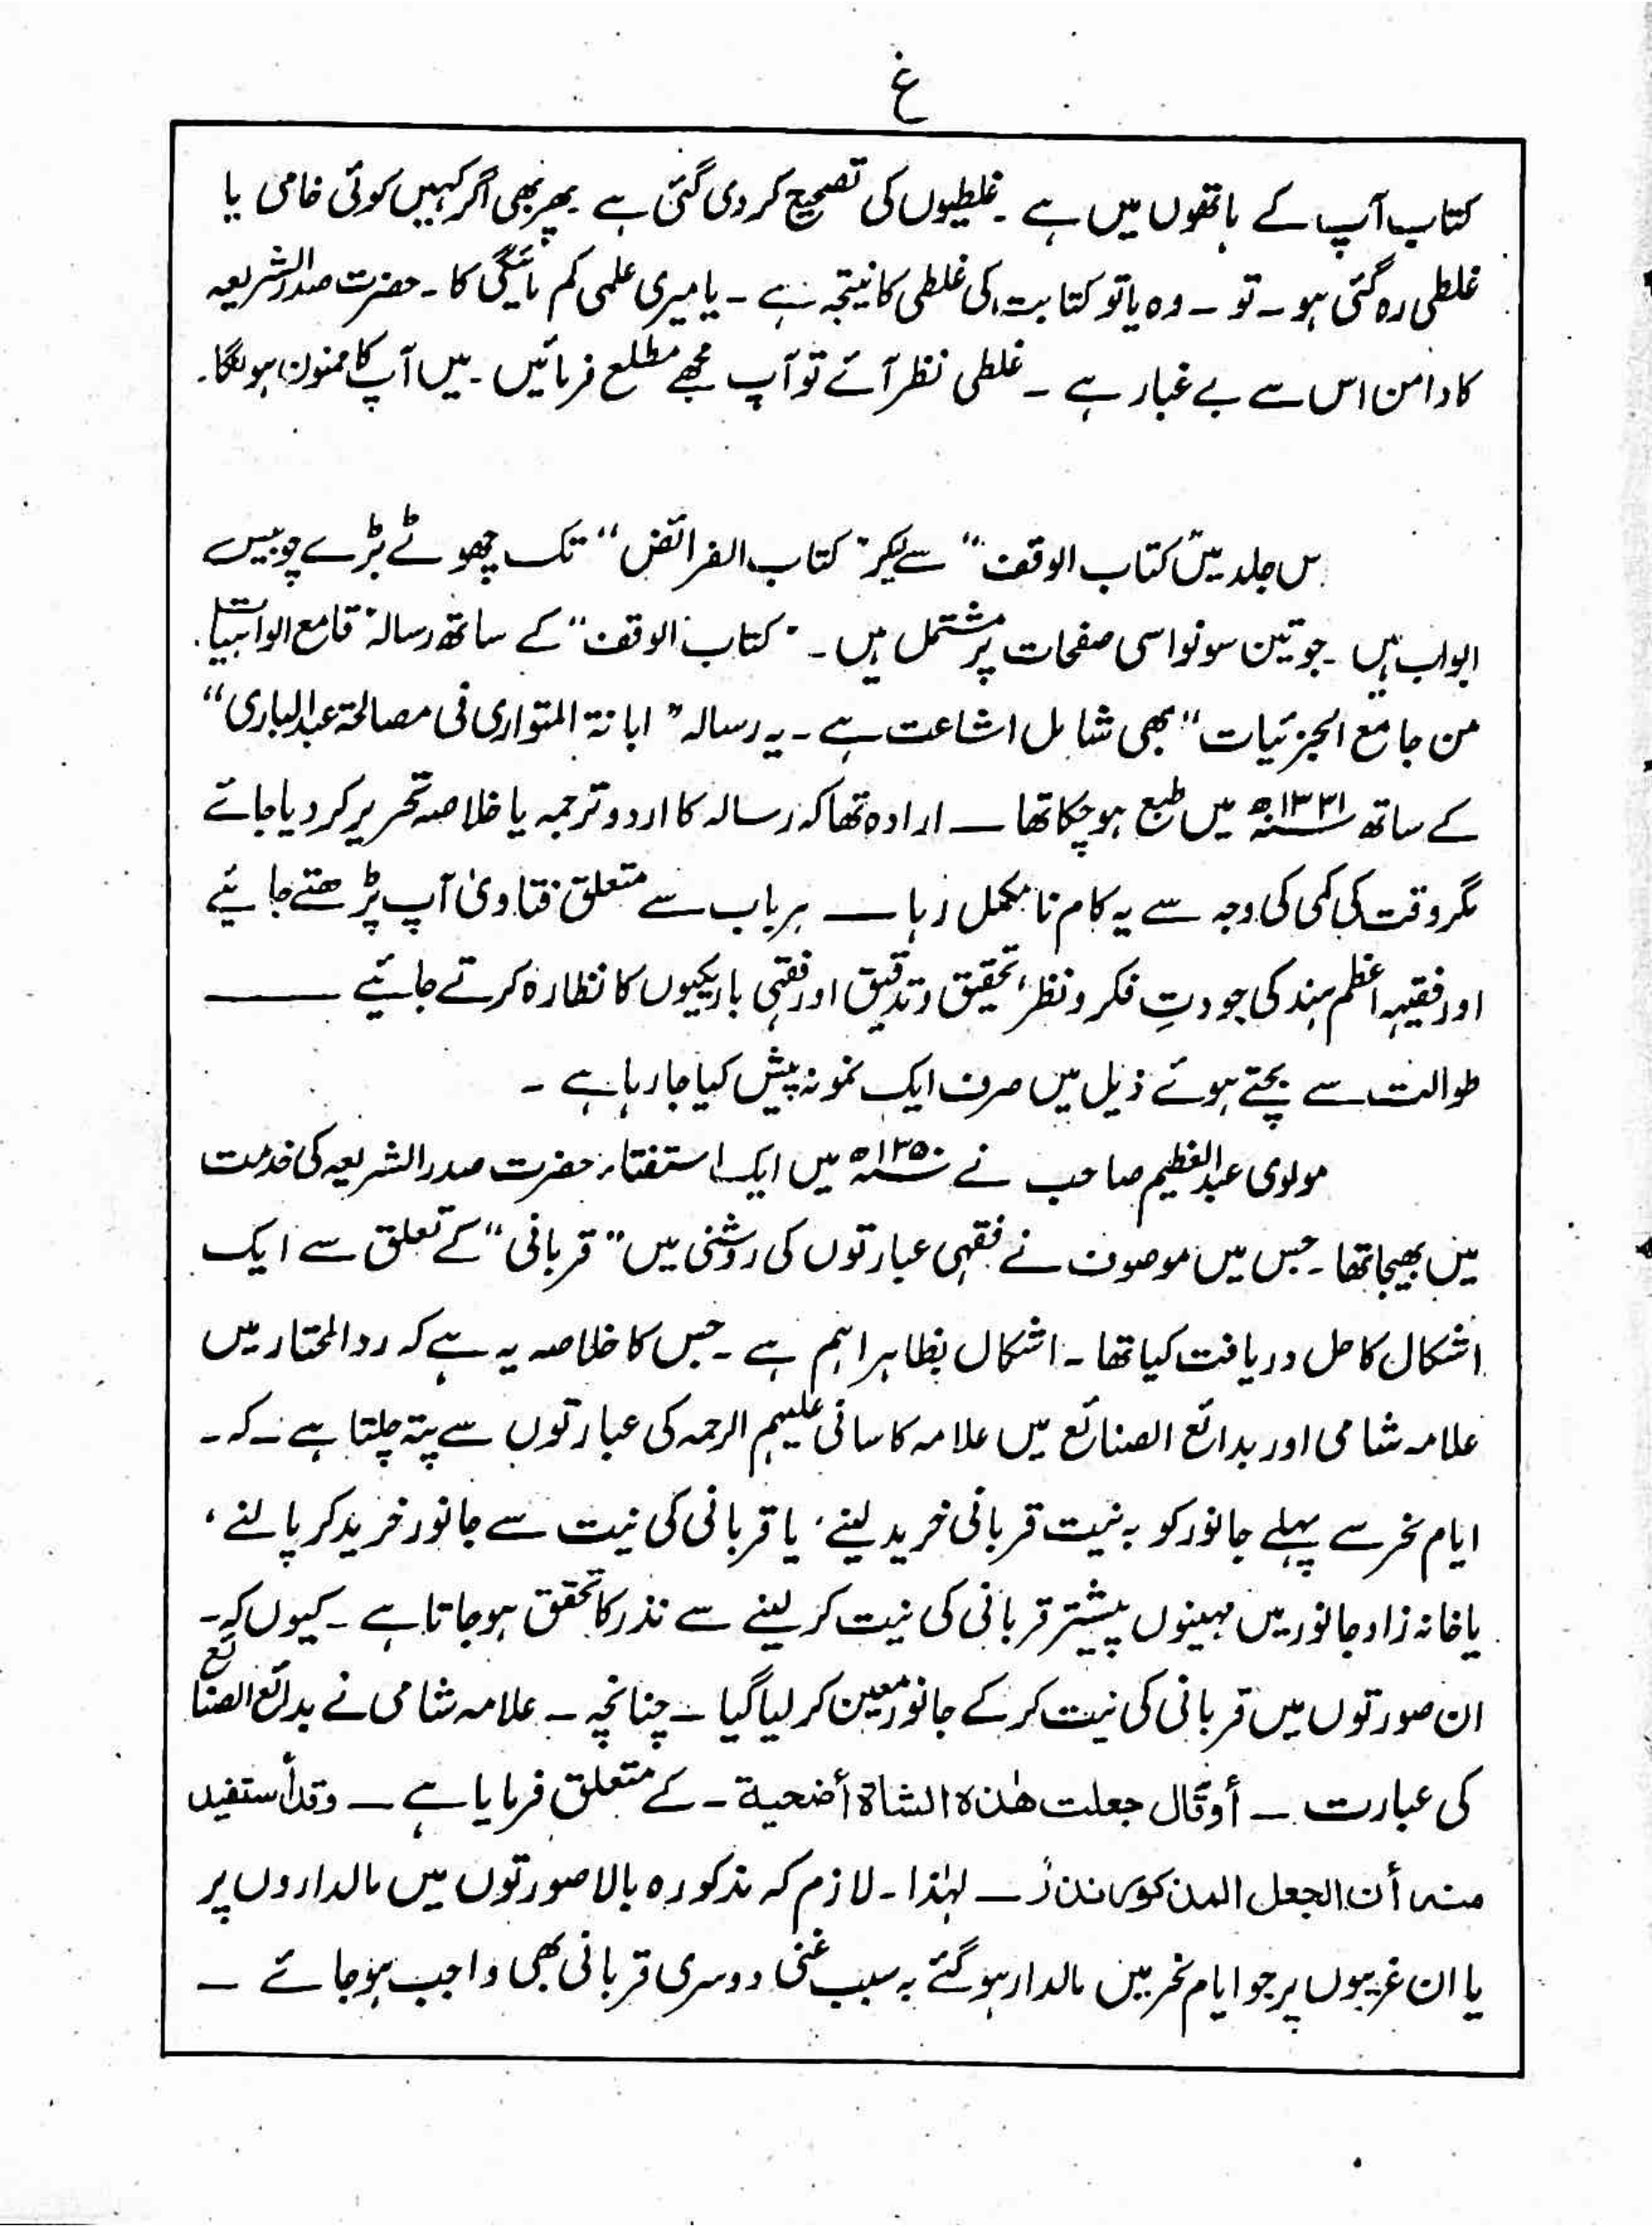 غ
کتاب آپ کے ہاتھوں میں ہے ۔ غلطیوں کی تصحیح کر دی گئی ہے پھر بھی اگر کہیں کوئی خامی یا
غلطی رہ گئی ہو ۔ تو ۔ وہ یا تو کتابت کی غلطی کا نتیجہ ہے ۔ یا میری علمی کم مائیگی کا ۔ حضرت صدر الشریعہ
کا دامن اس سے بے غبار ہے ۔ غلطی نظر آئے تو آپ مجھے مطلع فرمائیں ۔ میں آپ کا ممنون ہونگا ۔
س جلد میں "کتاب الوقف" سے لیکر "کتاب الفرائض" تک چھوٹے بڑے چوبیس
ابواب ہیں ۔ جو تین سو نواسی صفحات پر مشتمل ہیں ۔ "کتاب الوقف" کے ساتھ رسالہ "قامع الواہیات
من جامع الجزئیات" بھی شامل اشاعت ہے ۔ یہ رسالہ "ابانۃ المتواری فی مصالحۃ عبدالباری"
کے ساتھ ۱۳۳۱ھ میں طبع ہو چکا تھا ــ ارادہ تھا کہ رسالہ کا اردو ترجمہ یا خلاصہ تحریر کر دیا جائے
مگر وقت کی کمی کی وجہ سے یہ کام نامکمل رہا ــ ہر باب سے متعلق فتاویٰ آپ پڑھتے جائیے
اور فقیہہ اعظم ہند کی جودتِ فکر و نظر، تحقیق و تدقیق اور فقہی باریکیوں کا نظارہ کرتے جائیے ــــ
طوالت سے بچتے ہوئے ذیل میں صرف ایک نمونہ پیش کیا جا رہا ہے ۔
مولوی عبدالعظیم صاحب نے ۱۳۵۰ھ میں ایک استفتاء حضرت صدر الشریعہ کی خدمت
میں بھیجا تھا ۔ جس میں موصوف نے فقہی عبارتوں کی روشنی میں "قربانی" کے تعلق سے ایک
اشکال کا حل دریافت کیا تھا ۔ اشکال بظاہر اہم ہے ۔ جس کا خلاصہ یہ ہے کہ رد المحتار میں
علامہ شامی اور بدائع الصنائع میں علامہ کاسانی علیہم الرحمہ کی عبارتوں سے پتہ چلتا ہے ۔ کہ ۔
ایام نحر سے پہلے جانور کو بہ نیت قربانی خرید لینے، یا قربانی کی نیت سے جانور خرید کر پالنے،
یا خانہ زاد جانور میں مہینوں پیشتر قربانی کی نیت کر لینے سے نذر کا تحقق ہو جاتا ہے ۔ کیوں کہ ۔
ان صورتوں میں قربانی کی نیت کر کے جانور معین کر لیا گیا ۔ چنانچہ ۔ علامہ شامی نے بدائع الصنائع
کی عبارت ــ أو قال جعلت هٰذه الشاة أضحية ــ کے متعلق فرمایا ہے ــ وقد أستفيد
منه أن الجعل المذكور نذرٌ ــ لہٰذا ۔ لازم کہ مذکورہ بالا صورتوں میں مالداروں پر
یا ان غریبوں پر جو ایام نحر میں مالدار ہو گئے بہ سبب غنی دوسری قربانی بھی واجب ہو جائے ــ